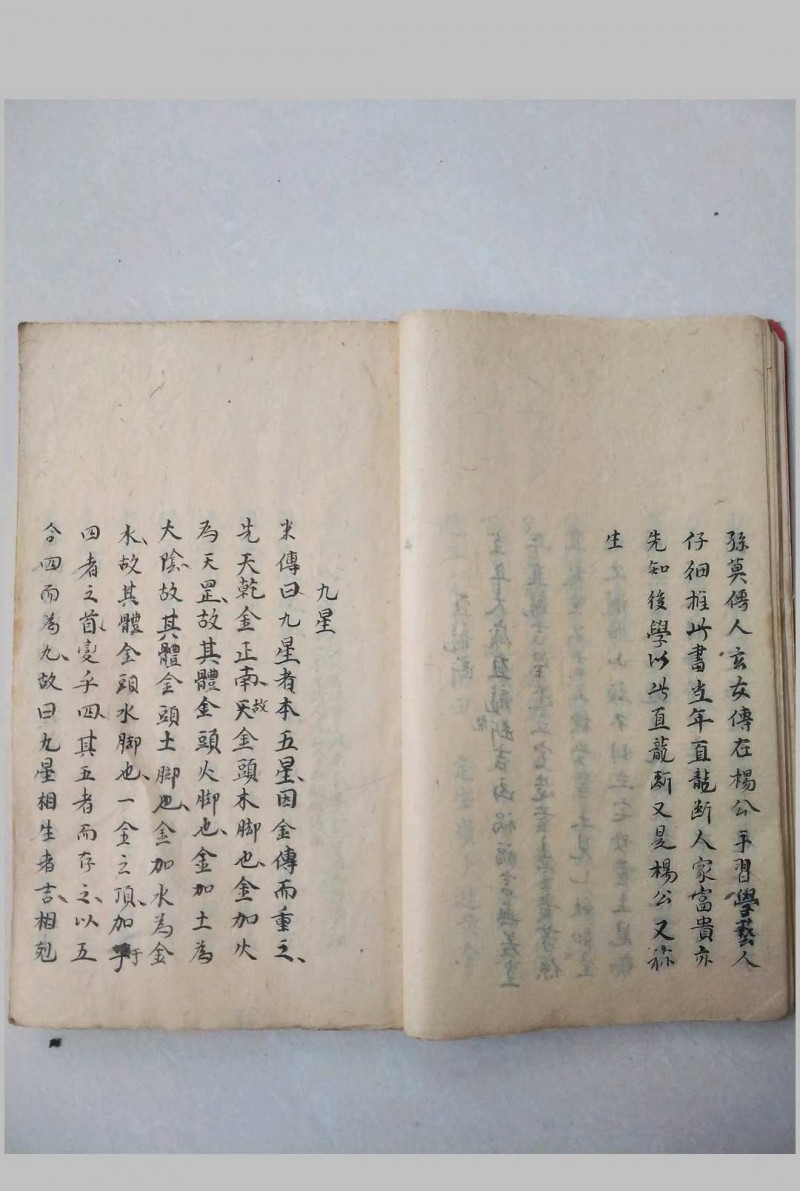 孫莫傳人玄女傳在楊公手習學藝人
仔細推此書当年直龍断人家富貴亦
先知後學以此直龍断又是楊公又称
生
九星
傳曰九星者本五星因金傳而重之
先天乾金正南故天金頭木脚也金加火
為天罡故其體金頭火脚也金加土為
大陰故其體金頭土脚也金加水為金
水故其體金頭水脚也一金之頂加于
四者之首變乎四其五者而存之以五
合四而為九故曰九星相生者吉相尅